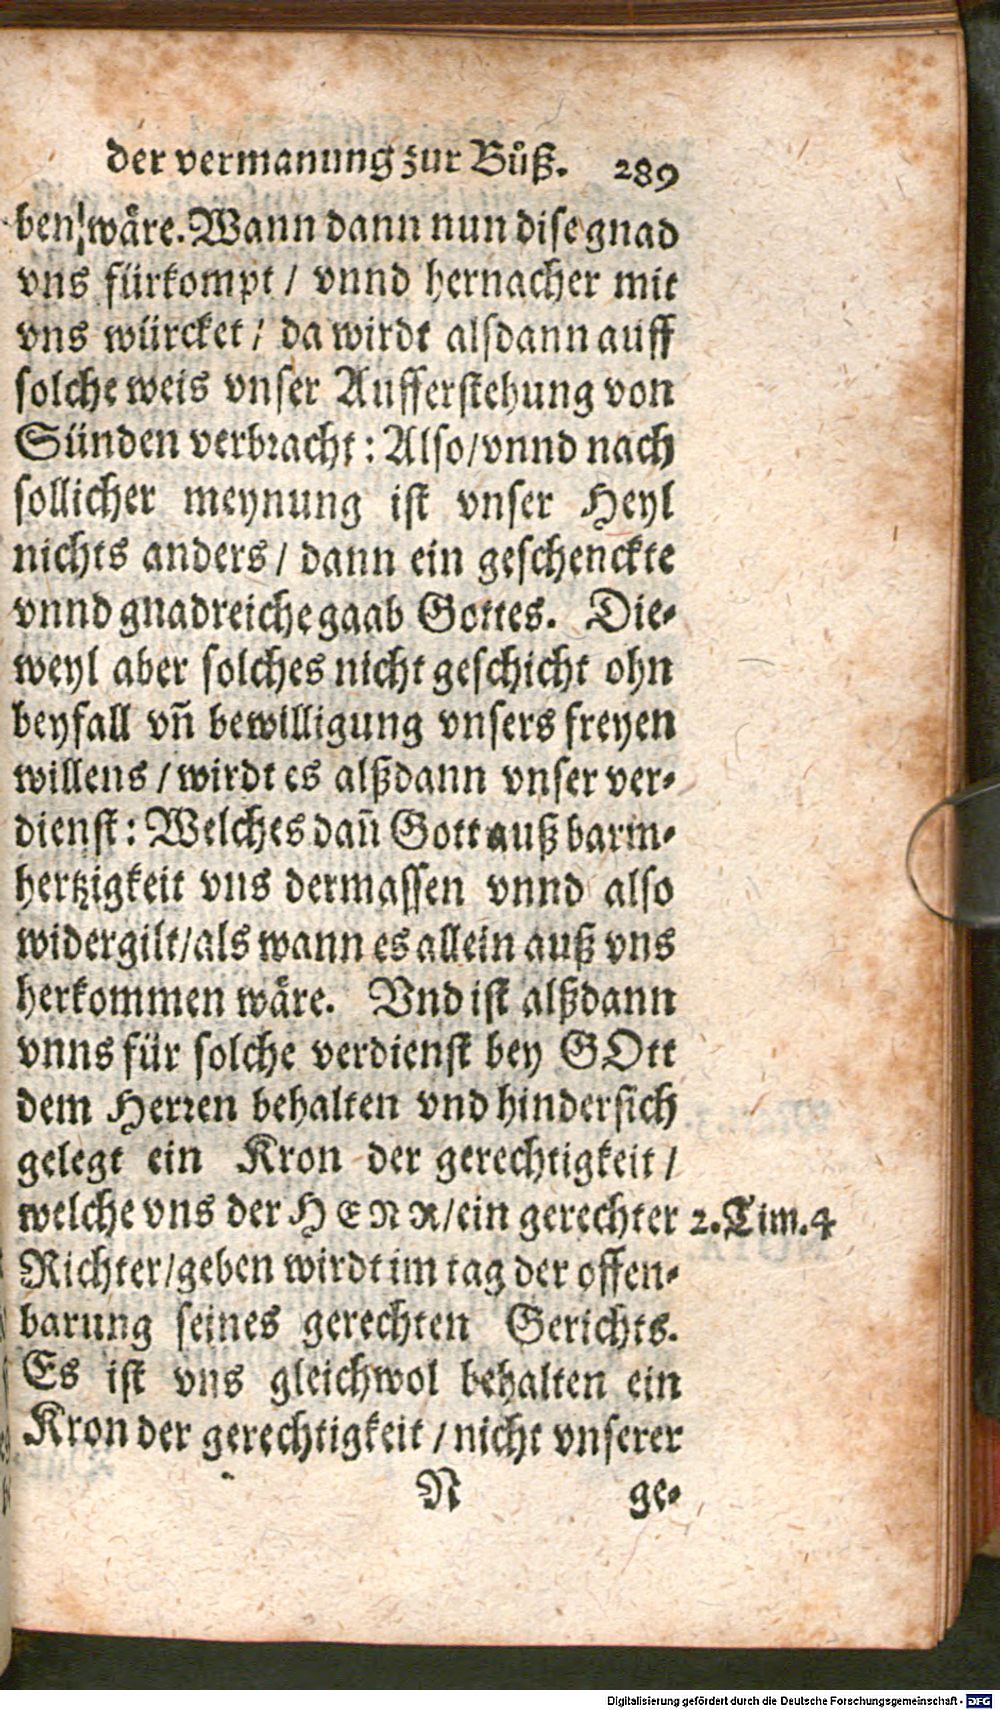 der vermanung zur Buͦß. 289
ben/ waͤre. Wann dann nun dise gnad
vns fürkompt / vnnd hernacher mit
vns würcket / da wirdt alsdann auff
solche weis vnser Aufferstehung von
Sünden verbracht: Also/vnnd nach
sollicher meynung ist vnser Heyl
nichts anders / dann ein geschenckte
vnnd gnadreiche gaab Gottes. Die-
weyl aber solches nicht geschicht ohn
beyfall vn̄ bewilligung vnsers freyen
willens / wirdt es alßdann vnser ver-
dienst: Welches dan̄ Gott auß barm-
hertzigkeit vns dermassen vnnd also
widergilt/als wann es allein auß vns
herkommen waͤre. Vnd ist alßdann
vnns für solche verdienst bey GOtt
dem Herren behalten vnd hindersich
gelegt ein Kron der gerechtigkeit /
welche vns der HERR/ein gerechter 2. Tim. 4
Richter/geben wirdt im tag der offen-
barung seines gerechten Gerichts.
Es ist vns gleichwol behalten ein
Kron der gerechtigkeit / nicht vnserer
N ge-
Digitalisierung gefördert durch die Deutsche Forschungsgemeinschaft - DFG